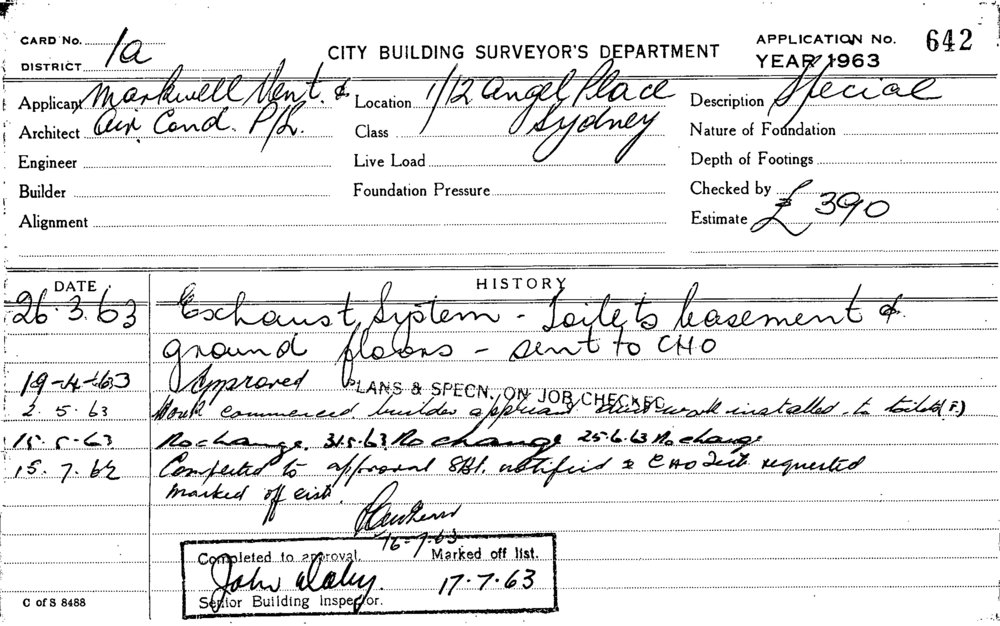 CARD No. 1a
DISTRICT
CITY BUILDING SURVEYOR'S DEPARTMENT
APPLICATION No. 642
YEAR 1963
Applicant Markwell Vent. &
Architect Air Cond. P/L.
Engineer
Builder
Alignment
Location 1/12 Angel Place
Class Sydney
Live Load
Foundation Pressure
Description Special
Nature of Foundation
Depth of Footings
Checked by
Estimate £ 390
DATE HISTORY
26.3.63 Exhaust System - Toilets basement &
ground floors - sent to CHO
19-4-63 Approved PLANS & SPECN. ON JOB CHECKED
2.5.63 Work commenced builder applicant work installed to toilets (F)
15.5.63 No change. 31.5.63 No change 25.6.63 No change
15.7.62 Completed to approval notified & CHO requested
marked off
16-7-63
Completed to approval. Marked off list.
John Daley. 17.7.63
Senior Building Inspector.
C of S 8488